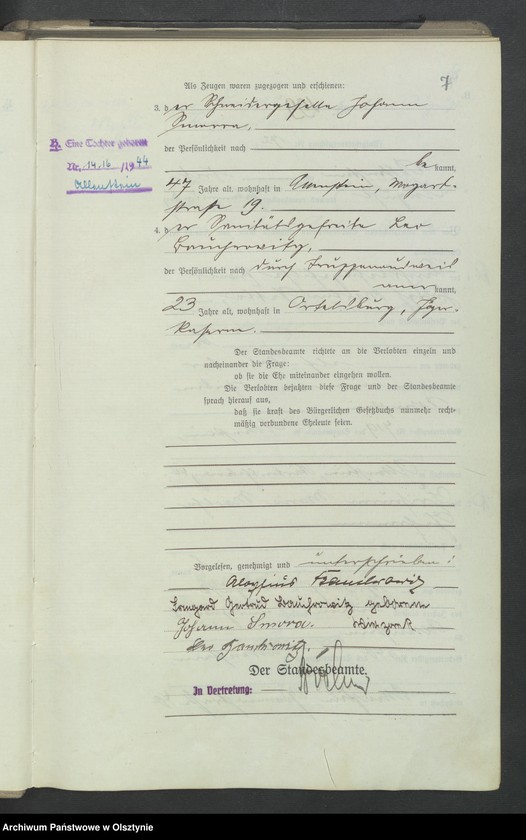 7
Als Zeugen waren zugezogen und erschienen:
3. der Schneidergeselle Johann
Smorra,
B. Eine Tochter geboren
Nr. 1416 /1944
Allenstein
der Persönlichkeit nach
bekannt,
47 Jahre alt, wohnhaft in Allenstein, Mozart-
straße 19.
4. der Sanitätsgefreite Leo
der Persönlichkeit nach durch Truppenausweis
kannt,
23 Jahre alt, wohnhaft in Ortelsburg, Jäger-
kaserne.
Der Standesbeamte richtete an die Verlobten einzeln und
nacheinander die Frage:
ob sie die Ehe miteinander eingehen wollen.
Die Verlobten bejahten diese Frage und der Standesbeamte
sprach hierauf aus,
daß sie kraft des Bürgerlichen Gesetzbuchs nunmehr recht-
mäßig verbundene Eheleute seien.
Vorgelesen, genehmigt und unterschrieben:
Aloysius
Gertrud geborene
Johann
Leo
Der Standesbeamte.
In Vertretung:
Archiwum Państwowe w Olsztynie